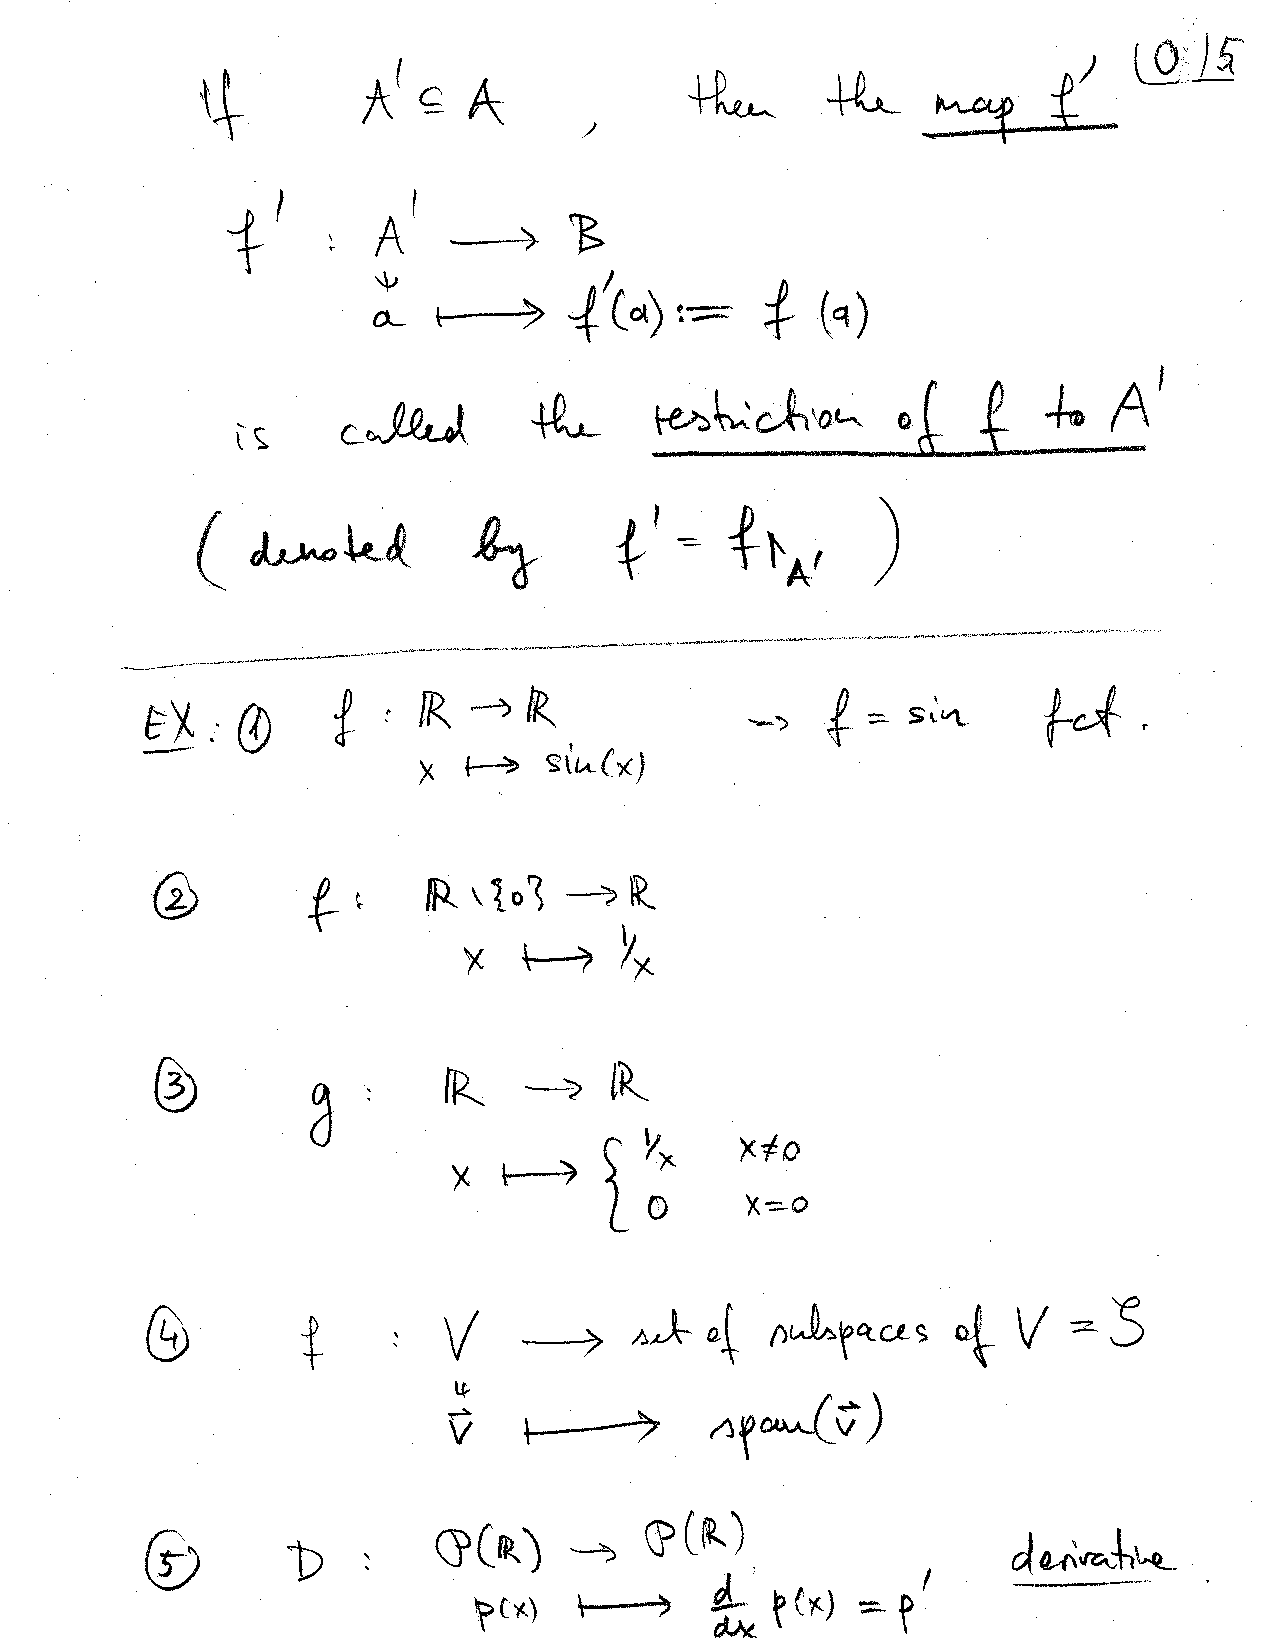 10/5
If A' ⊆ A , then the map f'
f' : A' ⟶ B
ψ
a ⟼ f'(a) := f (a)
is called the restriction of f to A'
( denoted by f' = f↾A' )
EX: ① f : ℝ → ℝ ⇝ f = sin fct.
x ⟼ sin(x)
② f : ℝ \ {0} → ℝ
x ⟼ 1/x
③ g : ℝ → ℝ
x ⟼ { 1/x x≠0
0 x=0
④ f : V ⟶ set of subspaces of V = S
ψ
v⃗ ⟼ span(v⃗)
⑤ D : P(ℝ) → P(ℝ) derivative
p(x) ⟼ d/dx p(x) = p'